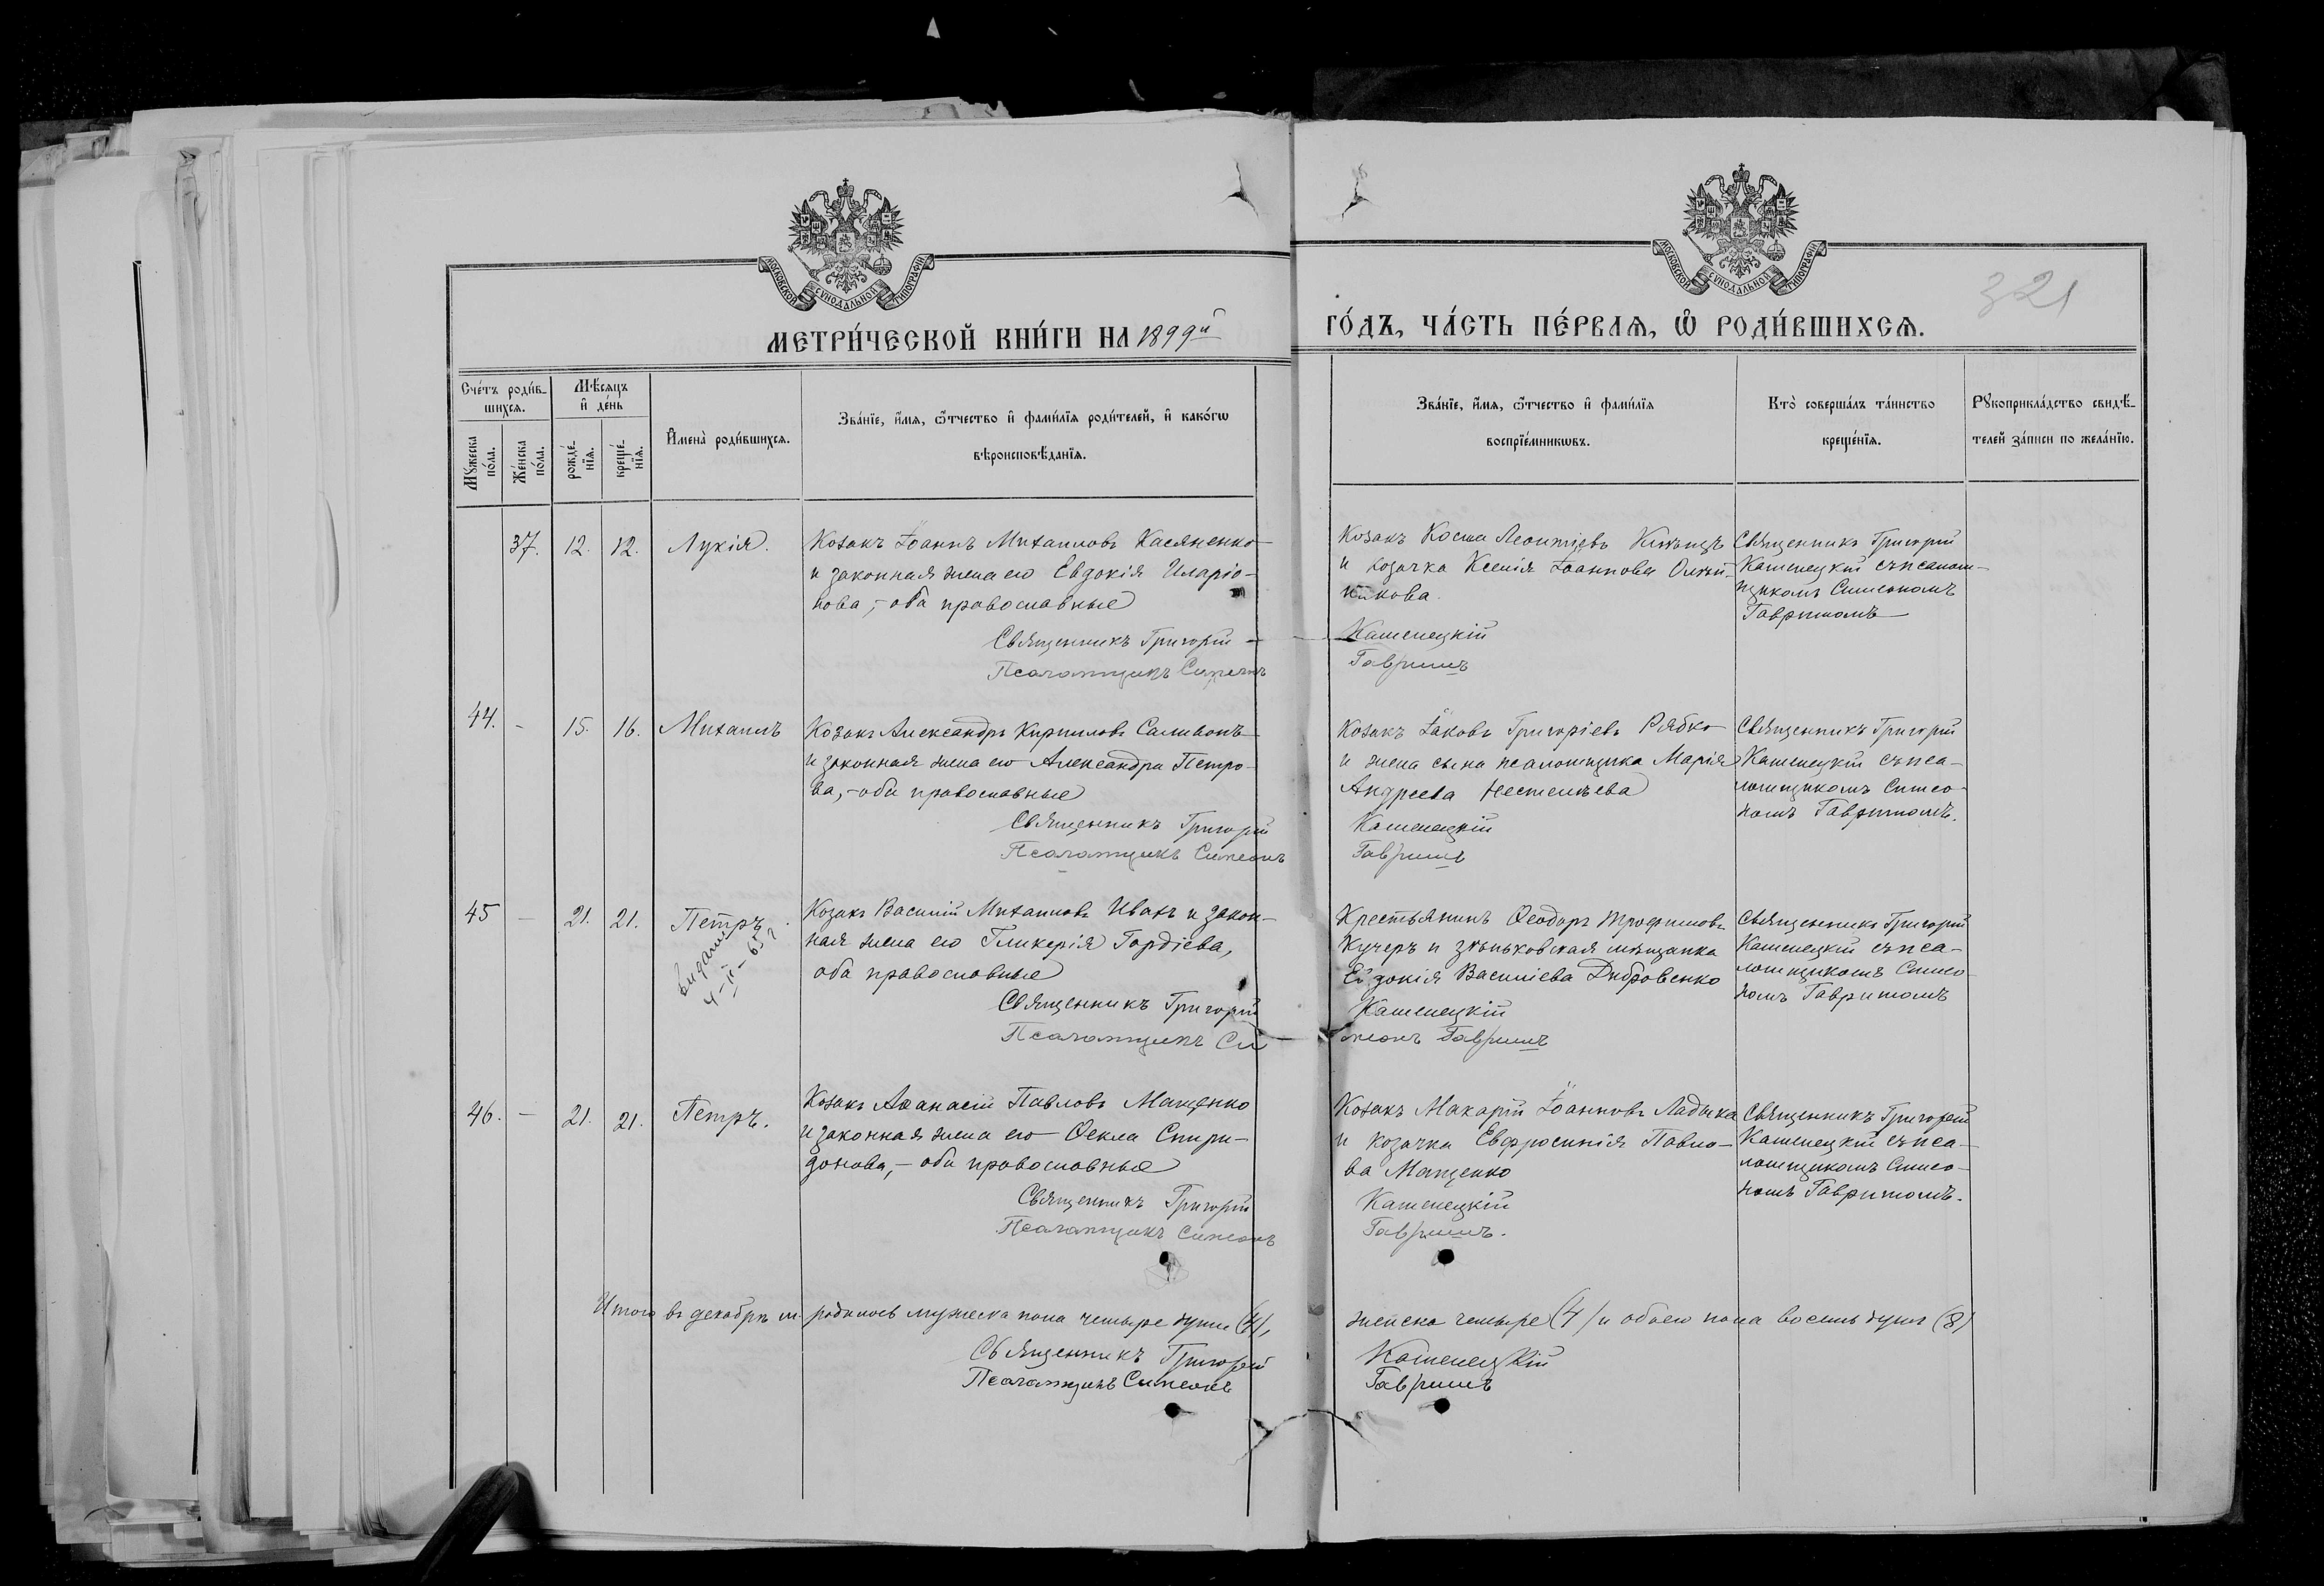 МОСКОВСКОЙ СѴНОДАЛЬНОЙ ТИПОГРАФІИ
МОСКОВСКОЙ СѴНОДАЛЬНОЙ ТИПОГРАФІИ
321
МЕТРИ́ЧЕСКОЙ КНИ́ГИ НА 1899й
ГО́ДЪ, ЧА́СТЬ ПЕ́РВАѦ, Ѽ РОДИ́ВШИХСѦ.
Сче́тъ роди́в-
шихсѧ.
Мѣ́сѧцъ
и҆ де́нь
Мꙋ́жеска
по́ла.
Же́нска
по́ла.
рожде́-
нїѧ.
креще́-
нїѧ.
И҆мена̀ роди́вшихсѧ.
Зва́нїе, и҆́мѧ, ѻ҆́тчество и҆ фами́лїѧ роди́телей, и҆ како́гѡ
вѣроисповѣ́данїѧ.
Зва́нїе, и҆́мѧ, ѻ҆́тчество и҆ фами́лїѧ
воспрїе́мникѡвъ.
Кто̀ соверша́лъ та́инство
креще́нїѧ.
Рꙋкоприкла́дство свидѣ́-
телей за́писи по жела́нїю.
37. 12. 12. Лукія.
Козакъ Іоаннъ Михаиловъ Касяненко
и законная жена его Евдокія Иларіо-
нова, - оба православные
Священникъ Григорій
Псаломщикъ Симеонъ
Козакъ Косма Леонтіевъ
и козачка Ксенія Іоаннова Олѣй-
никова
Каменецкій
Гавришъ
Священникъ Григорій
Каменецкій съ псалом-
щикомъ Симеономъ
Гавришомъ
44. - 15. 16. Михаилъ
Козакъ Александръ Кирилловъ Саливонъ
и законная жена его Александра Петро-
ва, - оба православные
Священникъ Григорій
Псаломщикъ Симеонъ
Козакъ Іаковъ Григоріевъ Рябко
и жена сына псаломщика Марія
Андреева
Каменецкій
Гавришъ
Священникъ Григорій
Каменецкій съ пса-
ломщикомъ Симео-
номъ Гавришомъ.
45 - 21. 21. Петръ
видано
4-II-65 г
Козакъ Василій Михаиловъ Ивахъ и закон-
ная жена его Гликерія Гордіева,
оба православные
Священникъ Григорій
Псаломщикъ Си
Крестьянинъ Ѳеодоръ Трофимовъ
Кучеръ и зѣньковская мѣщанка
Евдокія Василіева Дибровенко
Каменецкій
меонъ Гавришъ
Священникъ Григорій
Каменецкій съ пса-
ломщикомъ Симео-
номъ Гавришомъ
46. - 21. 21. Петръ.
Козакъ Аѳанасій Павловъ Мащенко
и законная жена его Ѳекла Спири-
донова, - оба православные
Священникъ Григорій
Псаломщикъ Симеонъ
Козакъ Макарій Іоанновъ Ладыка
и козачка Евфросинія Павло-
ва Мащенко
Каменецкій
Гавришъ.
Священникъ Григорій
Каменецкій съ пса-
ломщикомъ Симео-
номъ Гавришомъ.
Итого въ декабрѣ м. родилось мужеска пола четыре души (4),
женска четыре (4) и обоего пола восемь душъ (8)
Священникъ Григорій
Псаломщикъ Симеонъ
Каменецкій
Гавришъ